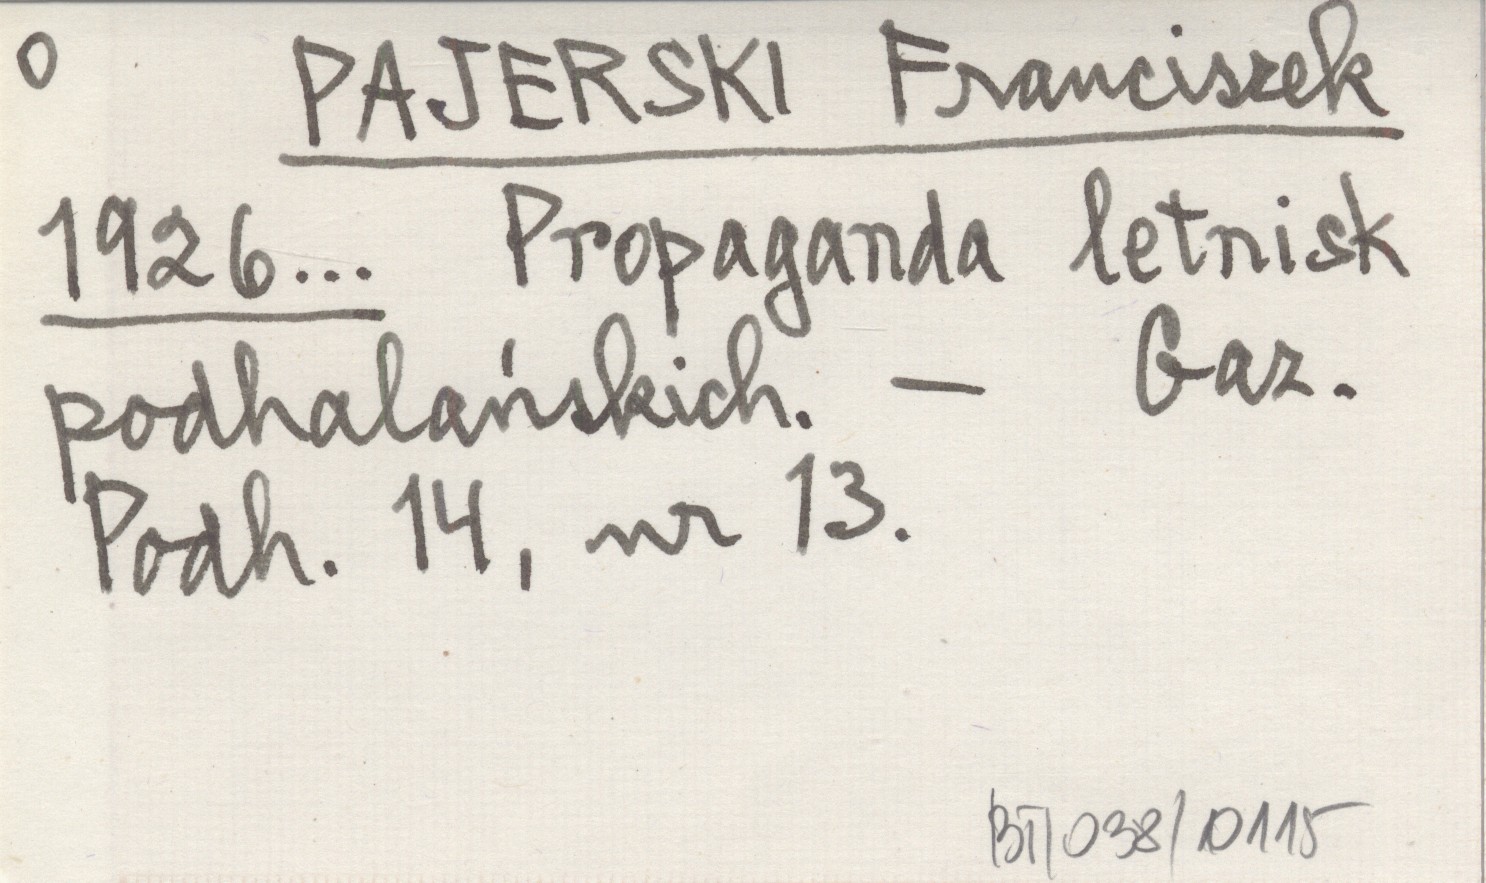 0 PAJERSKI Franciszek
1926... Propaganda letnisk
podhalańskich. — Gaz.
Podh. 14, nr 13.
BT/038/D115